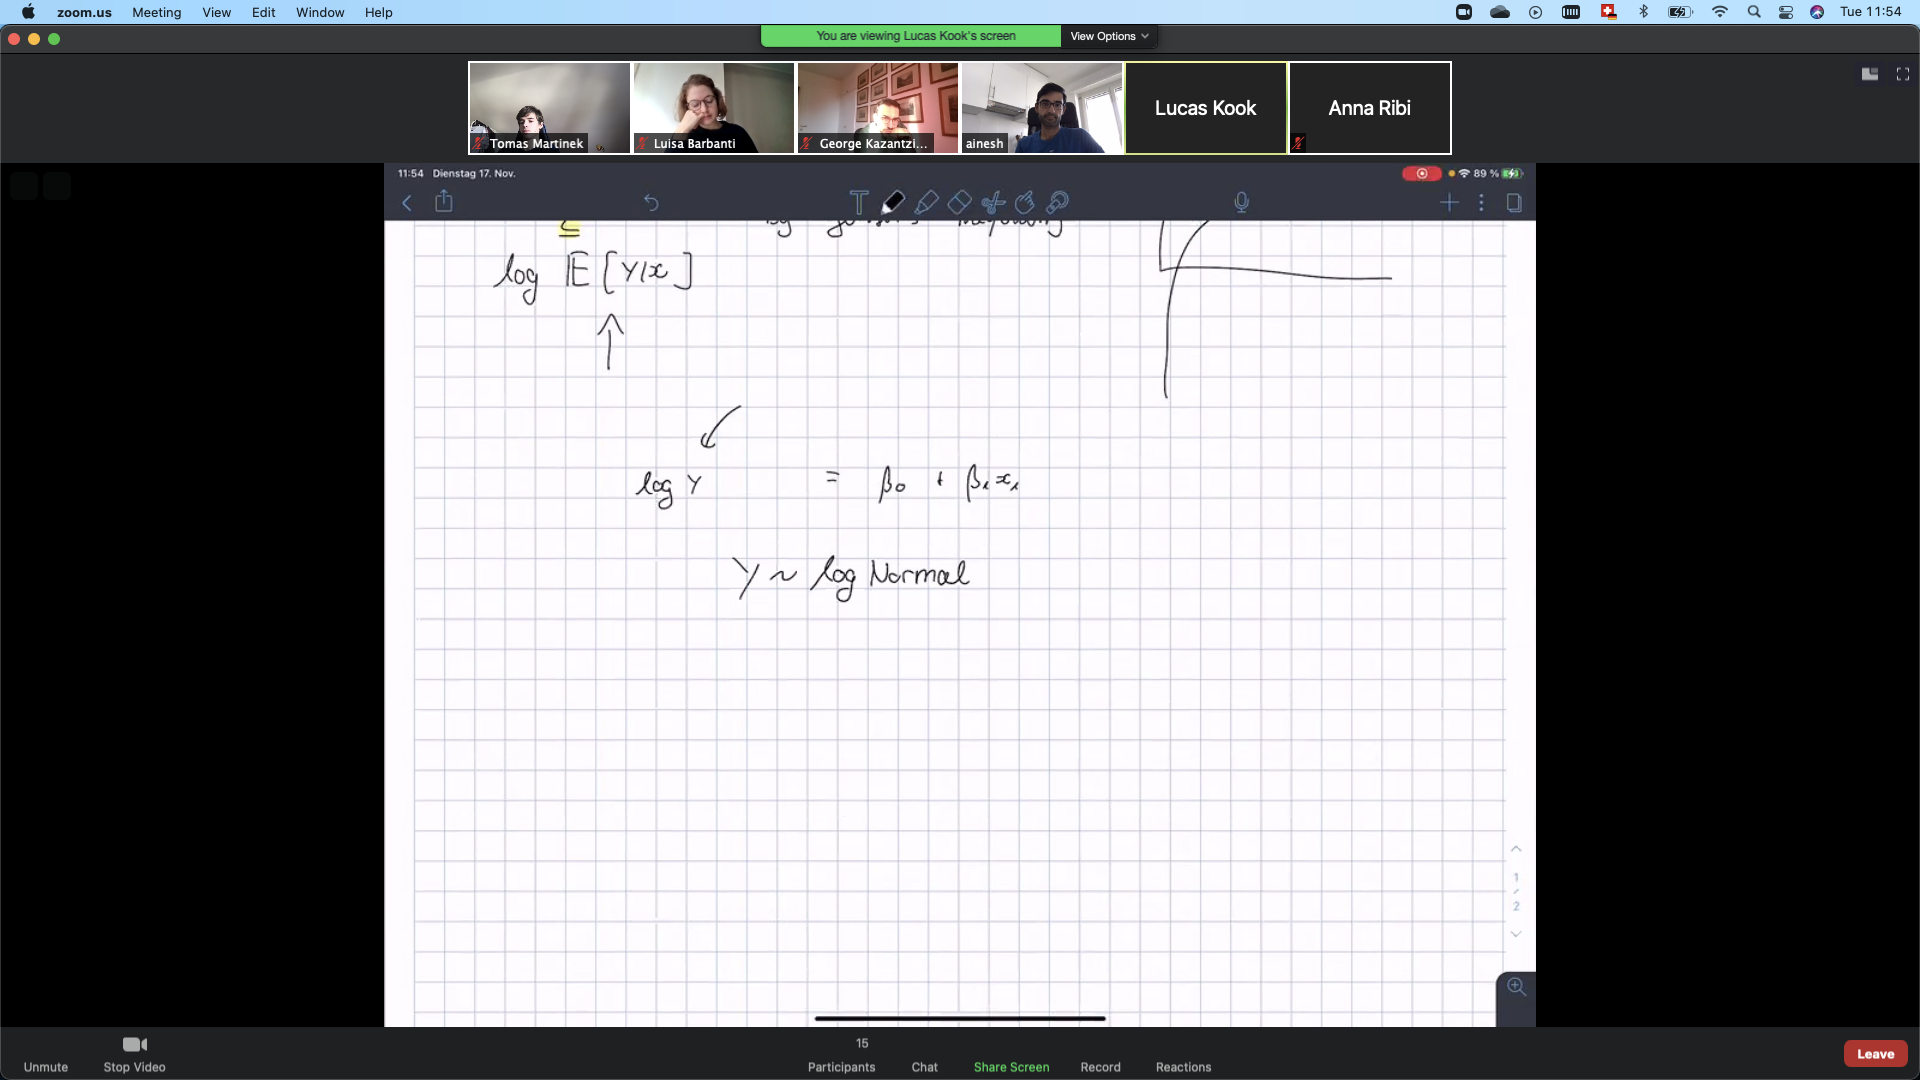 zoom.us Meeting View Edit Window Help Tue 11:54
You are viewing Lucas Kook's screen View Options
Tomas Martinek Luisa Barbanti George Kazantzi... ainesh Lucas Kook Anna Ribi
11:54 Dienstag 17. Nov. 89 %
≤ by inequality
log 𝔼[Y|x]
log Y = β₀ + β₁x₁
Y ~ log Normal
1
2
15
Unmute Stop Video Participants Chat Share Screen Record Reactions Leave